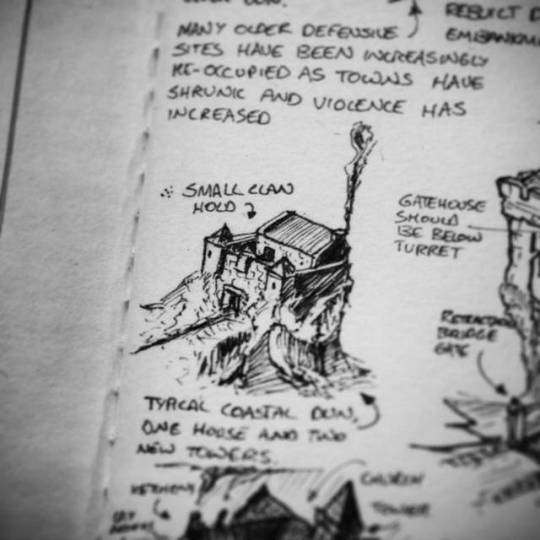 MANY OLDER DEFENSIVE
SITES HAVE BEEN INCREASINGLY
RE-OCCUPIED AS TOWNS HAVE
SHRUNK AND VIOLENCE HAS
INCREASED
REBUILT
SMALL CLAN
HOLD
GATEHOUSE
SHOULD
BE BELOW
TURRET
BRIDGE
GATE
TYPICAL COASTAL DUN.
ONE HOUSE AND TWO
NEW TOWERS.